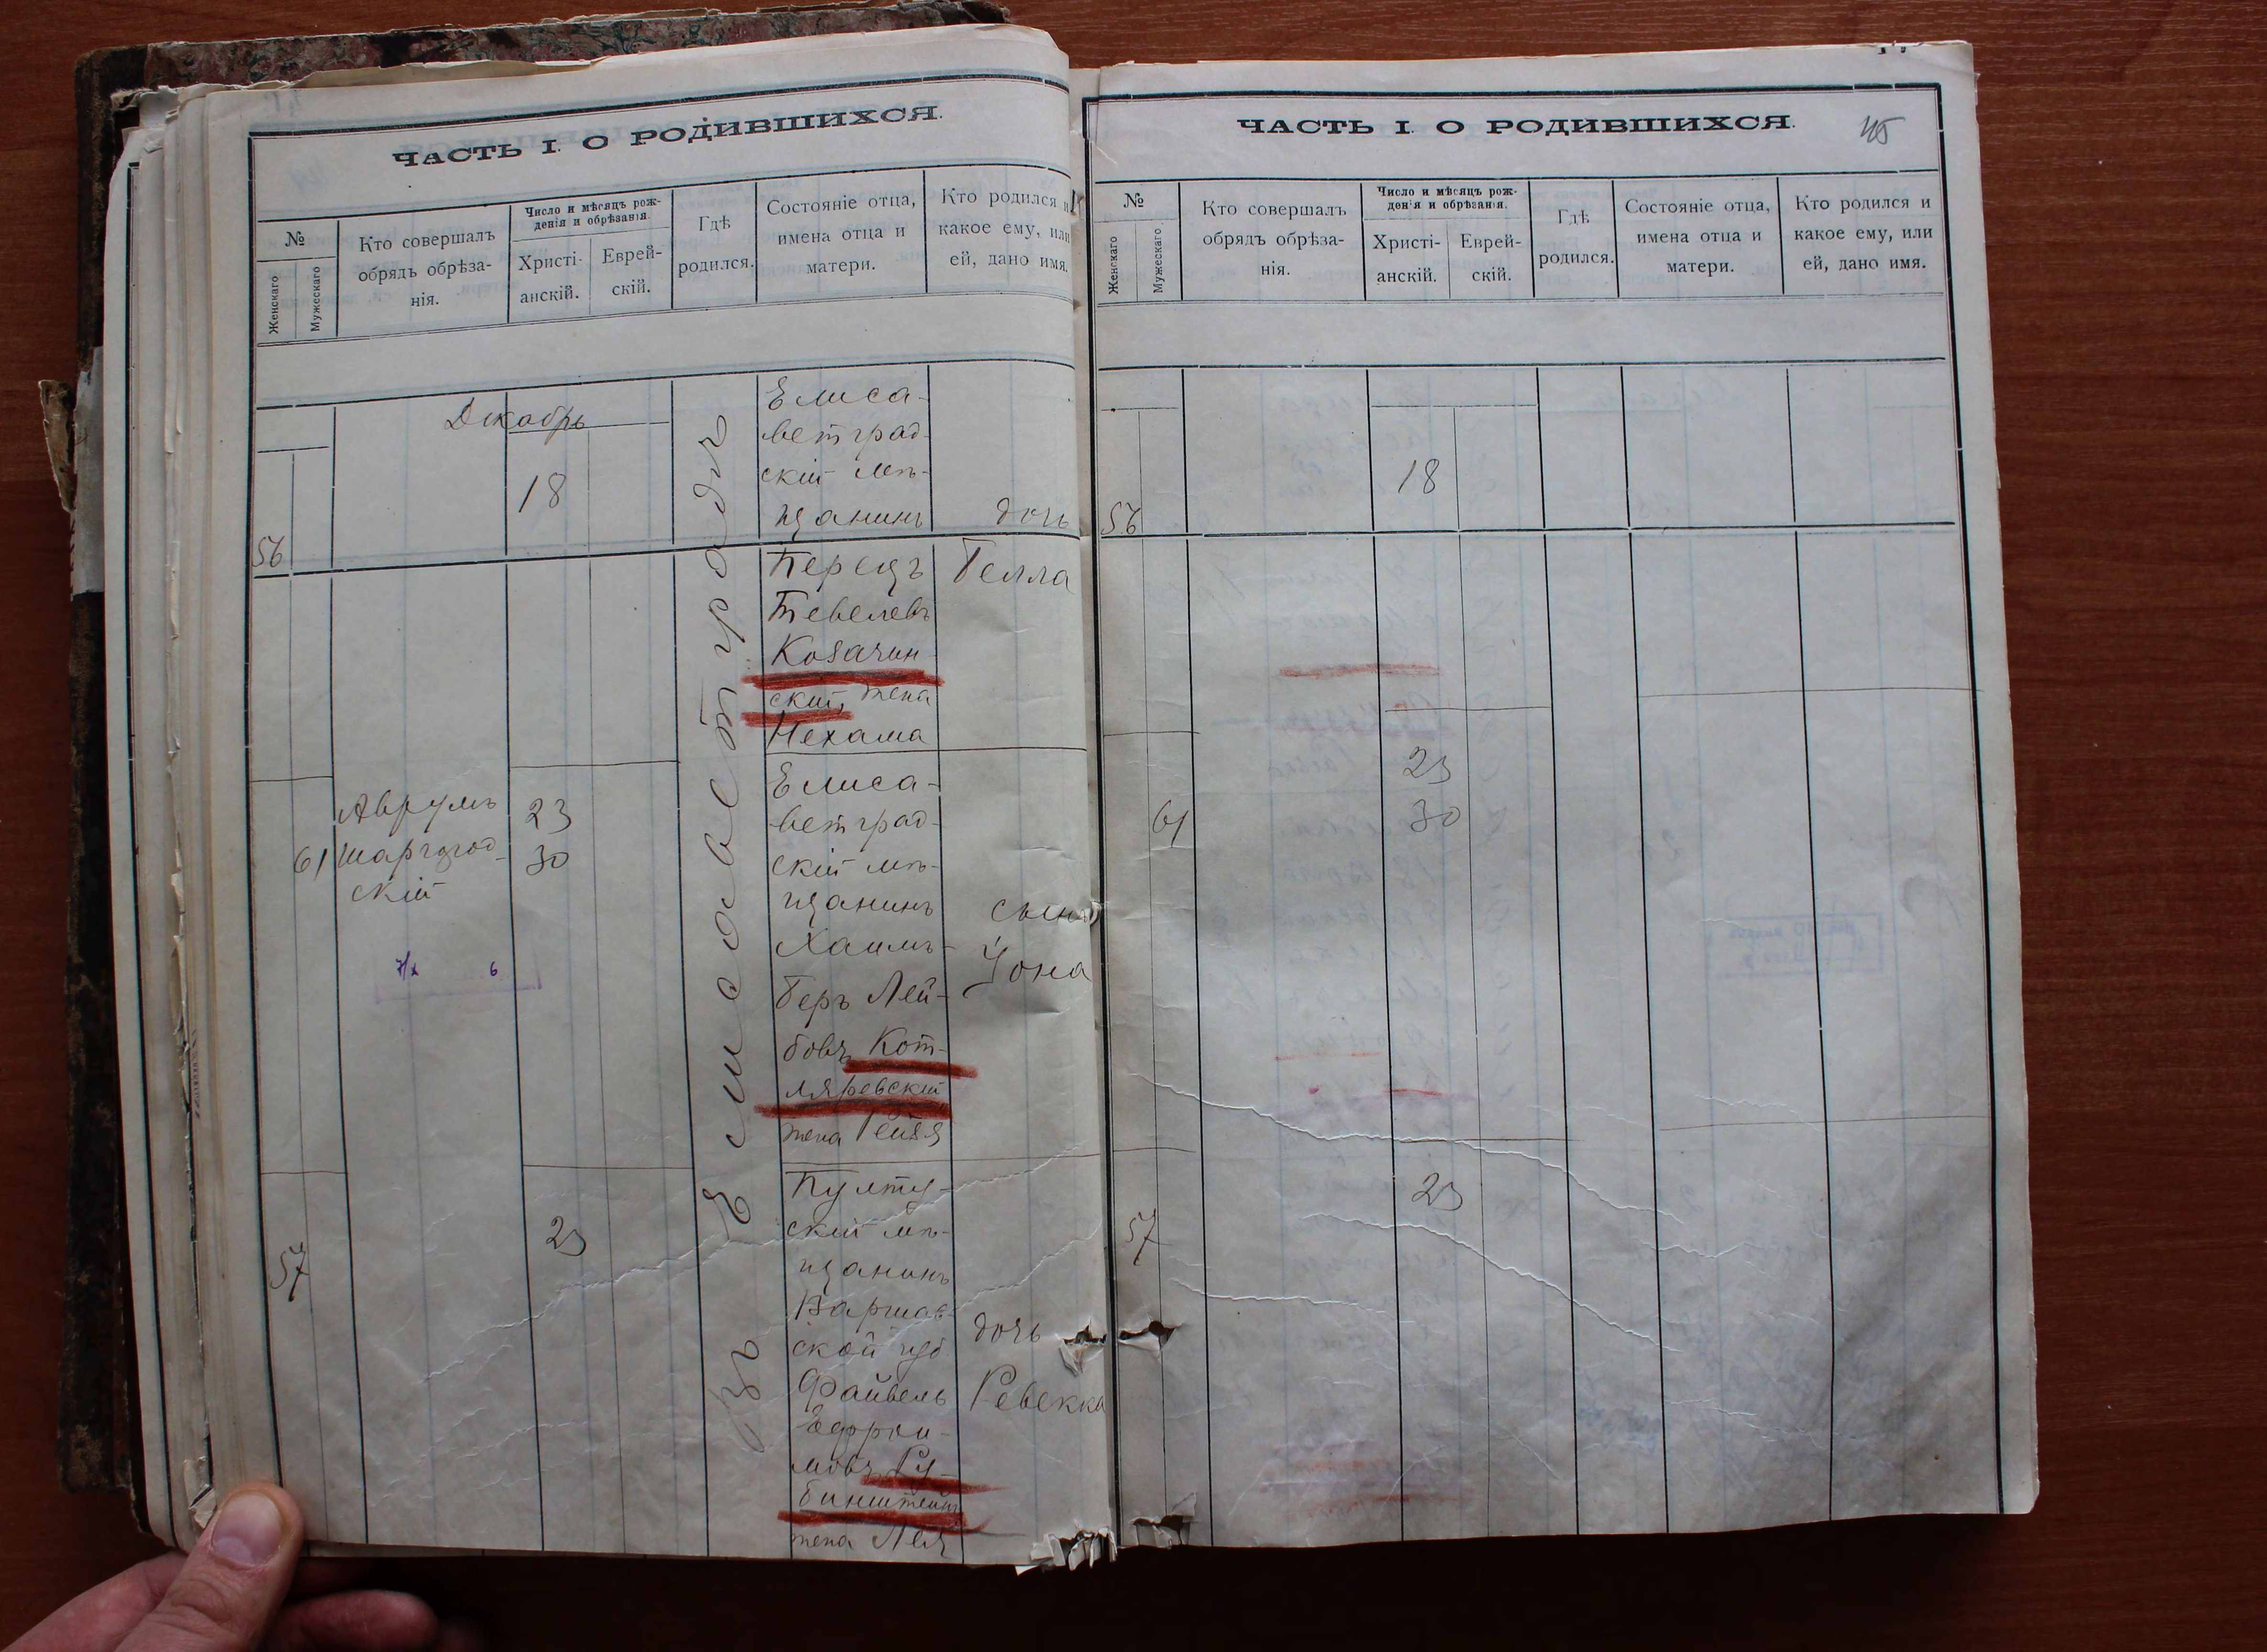 ЧАСТЬ I. О РОДИВШИХСЯ.
№
Женскаго
Мужескаго
Кто совершалъ
обрядъ обрѣза-
нія.
Число и мѣсяцъ рож-
денія и обрѣзанія.
Христі-
анскій.
Еврей-
скій.
Гдѣ
родился.
Состояніе отца,
имена отца и
матери.
Кто родился и
какое ему, или
ей, дано имя.
Декабрь
56
18
Елиса-
ветград-
скій мѣ-
щанинъ
Перецъ
Тевелевъ
Козачин-
скій, жена
Нехама
дочь
Белла
61
Аврумъ
Шаргород-
скій
23
30
Елиса-
ветград-
скій мѣ-
щанинъ
Хаимъ-
Беръ Лей-
бовъ Кот-
ляревскій
жена Рейзя
сынъ
Іона
57
23
Пулту-
скій мѣ-
щанинъ
Варшав-
ской губ
Файвель
мовъ Ру-
бинштейнъ
жена Лея
дочь
Ревекка
Въ Елисаветградѣ
ЧАСТЬ I. О РОДИВШИХСЯ.
45
№
Женскаго
Мужескаго
Кто совершалъ
обрядъ обрѣза-
нія.
Число и мѣсяцъ рож-
денія и обрѣзанія.
Христі-
анскій.
Еврей-
скій.
Гдѣ
родился.
Состояніе отца,
имена отца и
матери.
Кто родился и
какое ему, или
ей, дано имя.
56
18
61
23
30
57
23